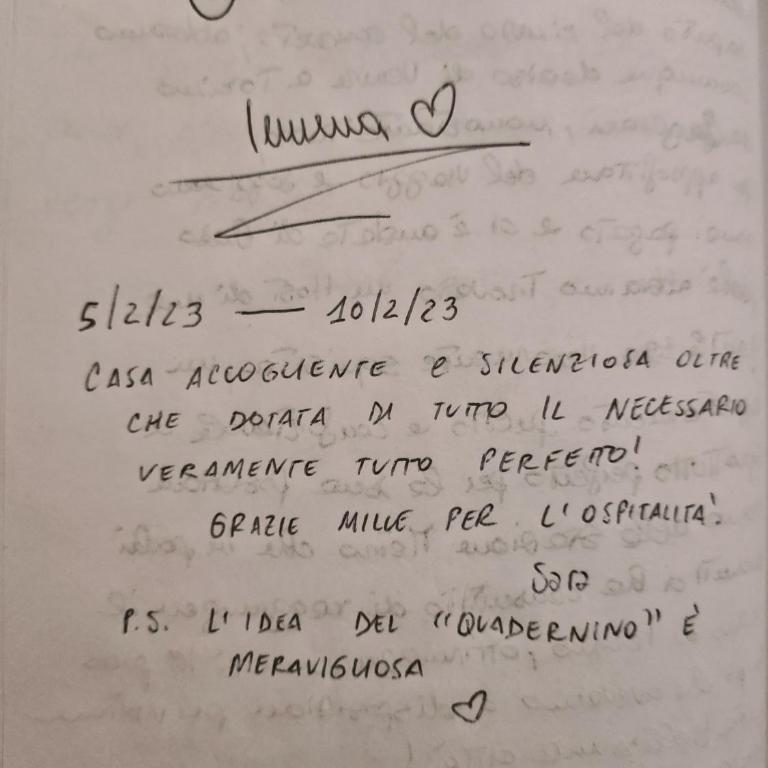 ♡
5/2/23 — 10/2/23
CASA ACCOGLIENTE e SILENZIOSA OLTRE
CHE DOTATA DI TUTTO IL NECESSARIO
VERAMENTE TUTTO PERFETTO!
GRAZIE MILLE PER L'OSPITALITÀ.
Sara
P.S. L'IDEA DEL "QUADERNINO" È
MERAVIGLIOSA
♡